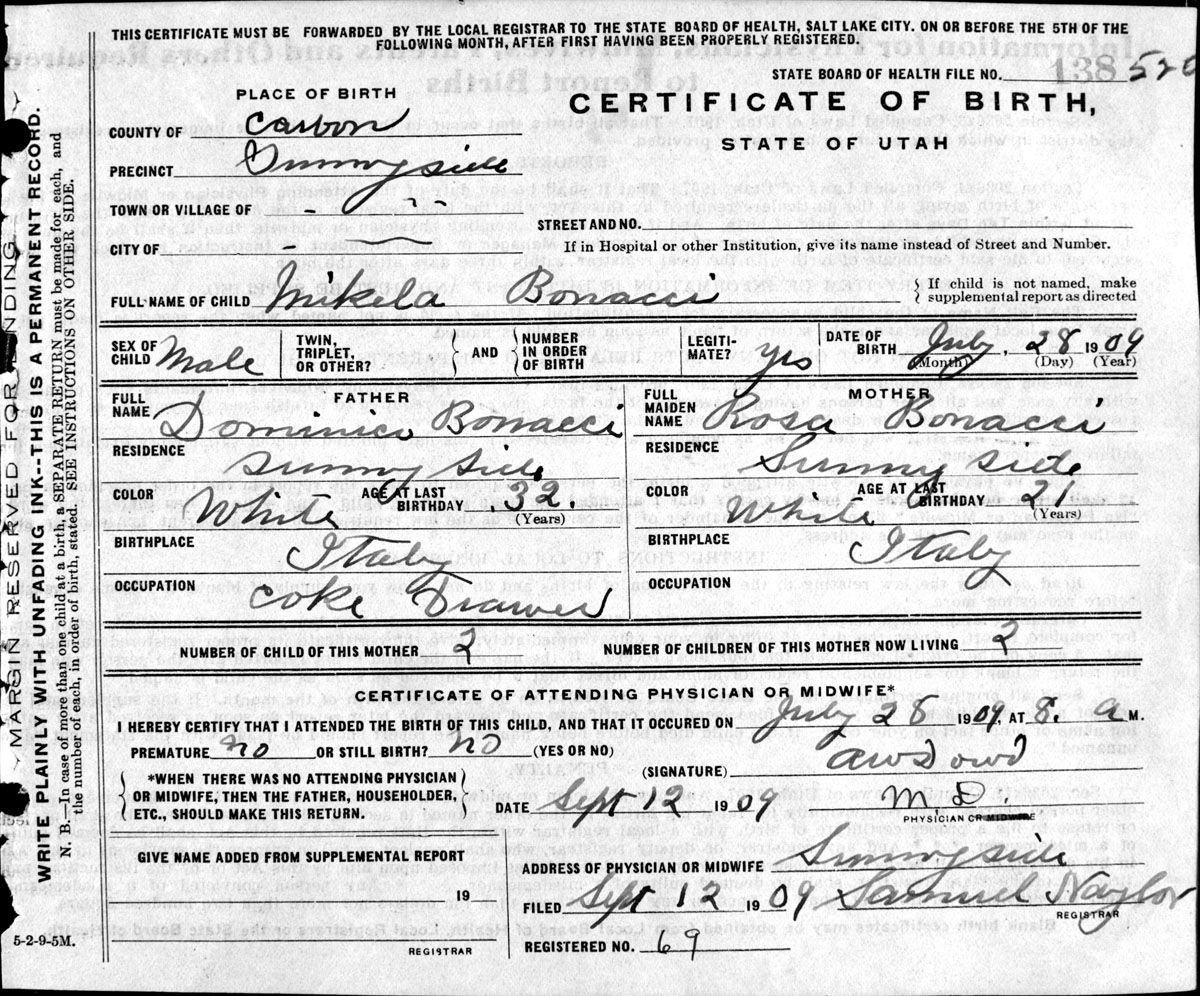 THIS CERTIFICATE MUST BE FORWARDED BY THE LOCAL REGISTRAR TO THE STATE BOARD OF HEALTH, SALT LAKE CITY. ON OR BEFORE THE 5TH OF THE
FOLLOWING MONTH, AFTER FIRST HAVING BEEN PROPERLY REGISTERED.
STATE BOARD OF HEALTH FILE NO. 138 520
PLACE OF BIRTH
CERTIFICATE OF BIRTH,
STATE OF UTAH
COUNTY OF Carbon
PRECINCT Sunnyside
TOWN OR VILLAGE OF - - -
STREET AND NO.
CITY OF -
If in Hospital or other Institution, give its name instead of Street and Number.
FULL NAME OF CHILD Mikela Bonacci
If child is not named, make
supplemental report as directed
SEX OF CHILD Male
TWIN, TRIPLET, OR OTHER?
AND
NUMBER IN ORDER OF BIRTH
LEGITIMATE? yes
DATE OF BIRTH July 28 1909
(Month) (Day) (Year)
FATHER
FULL NAME Dominico Bonacci
RESIDENCE Sunny side
COLOR White AGE AT LAST BIRTHDAY 32.
(Years)
BIRTHPLACE Italy
OCCUPATION Coke Drawer
MOTHER
FULL MAIDEN NAME Rosa Bonacci
RESIDENCE Sunny side
COLOR White AGE AT LAST BIRTHDAY 21
(Years)
BIRTHPLACE Italy
OCCUPATION
NUMBER OF CHILD OF THIS MOTHER 2
NUMBER OF CHILDREN OF THIS MOTHER NOW LIVING 2
CERTIFICATE OF ATTENDING PHYSICIAN OR MIDWIFE*
I HEREBY CERTIFY THAT I ATTENDED THE BIRTH OF THIS CHILD, AND THAT IT OCCURED ON July 28 1909, AT 8. a M.
PREMATURE no OR STILL BIRTH? no (YES OR NO)
(SIGNATURE) AW Dowd
*WHEN THERE WAS NO ATTENDING PHYSICIAN
OR MIDWIFE, THEN THE FATHER, HOUSEHOLDER,
ETC., SHOULD MAKE THIS RETURN.
DATE Sept 12 1909 M.D.
PHYSICIAN OR MIDWIFE
GIVE NAME ADDED FROM SUPPLEMENTAL REPORT
19
REGISTRAR
ADDRESS OF PHYSICIAN OR MIDWIFE Sunnyside
FILED Sept 12 1909 Samuel Naylor
REGISTRAR
REGISTERED NO. 69
5-2-9-5M.
MARGIN RESERVED FOR BINDING
WRITE PLAINLY WITH UNFADING INK--THIS IS A PERMANENT RECORD.
N. B.—In case of more than one child at a birth, a SEPARATE RETURN must be made for each, and
the number of each, in order of birth, stated. SEE INSTRUCTIONS ON OTHER SIDE.